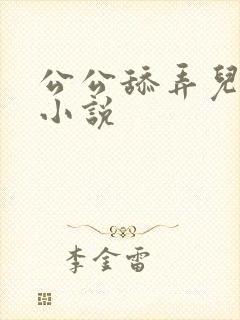 公公舔弄兒
小說
李金雷